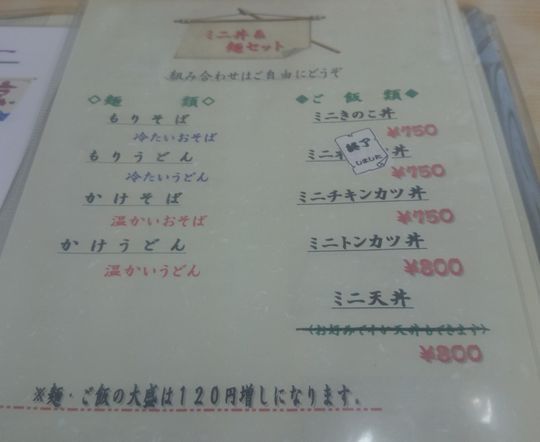 ミニ丼&
麺セット
組み合わせはご自由にどうぞ
◇麺 類◇
もりそば
冷たいおそば
もりうどん
冷たいうどん
かけそば
温かいおそば
かけうどん
温かいうどん
◆ご飯類◆
ミニきのこ丼
¥750
ミニ
丼
終了
しました
¥750
ミニチキンカツ丼
¥750
ミニトンカツ丼
¥800
ミニ天丼
¥800
※麺・ご飯の大盛は120円増しになります。